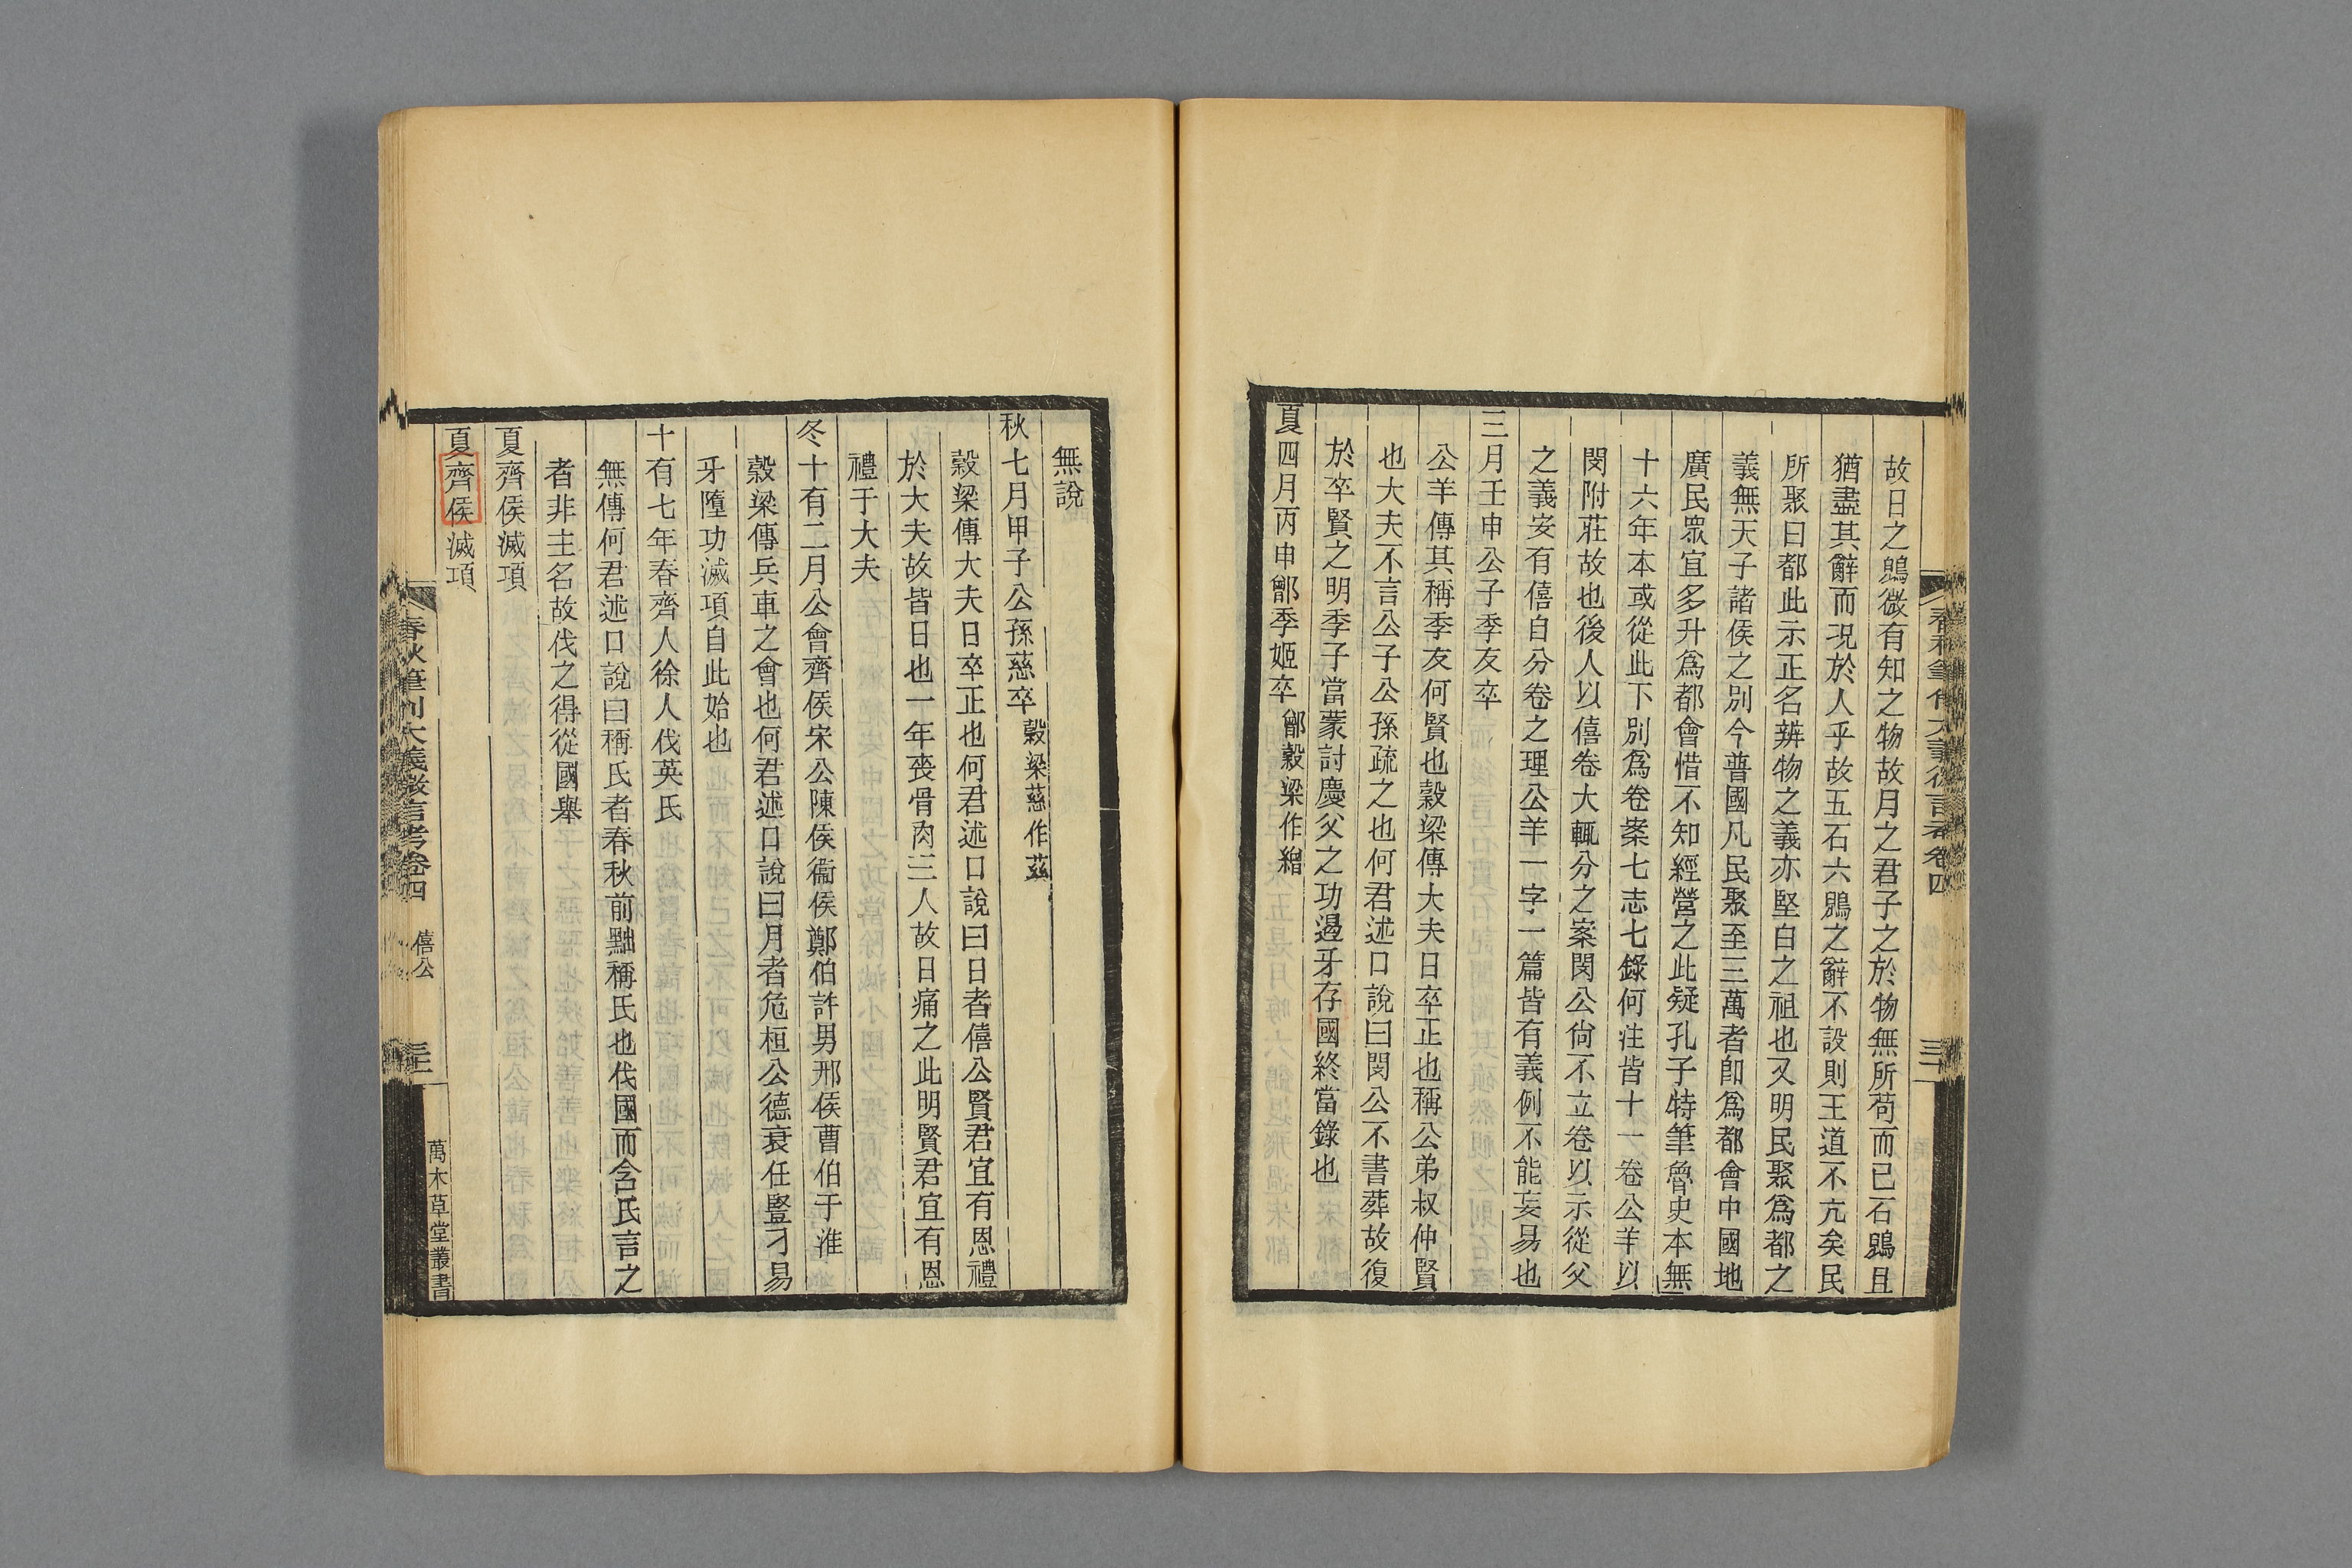 故日之鷁微有知之物故月之君子之於物無所苟而已石鷁且
猶盡其辭而況於人乎故五石六鷁之辭不設則王道不亢矣民
所聚曰都此示正名辨物之義亦堅白之祖也又明民聚爲都之
義無天子諸侯之別今普國凡民聚至三萬者卽爲都會中國地
廣民眾宜多升爲都會惜不知經營之此疑孔子特筆魯史本無
十六年本或從此下別爲卷案七志七錄何注皆十一卷公羊以
閔附莊故也後人以僖卷大輒分之案閔公尙不立卷以示從父
之義安有僖自分卷之理公羊一字一篇皆有義例不能妄易也
三月壬申公子季友卒
公羊傳其稱季友何賢也穀梁傳大夫日卒正也稱公弟叔仲賢
也大夫不言公子公孫疏之也何君述口說曰閔公不書葬故復
於卒賢之明季子當蒙討慶父之功遏牙存國終當錄也
夏四月丙申鄫季姬卒 鄫穀梁作繒
春秋筆削大義微言考卷四
無說
秋七月甲子公孫慈卒 穀梁慈作茲
穀梁傳大夫日卒正也何君述口說曰日者僖公賢君宜有恩禮
於大夫故皆日也一年喪骨肉三人故日痛之此明賢君宜有恩
禮于大夫
冬十有二月公會齊侯宋公陳侯衞侯鄭伯許男邢侯曹伯于淮
穀梁傳兵車之會也何君述口說曰月者危桓公德衰任豎刁易
牙墮功滅項自此始也
十有七年春齊人徐人伐英氏
無傳何君述口說曰稱氏者春秋前黜稱氏也伐國而舍氏言之
者非主名故伐之得從國舉
夏齊侯滅項
夏齊侯滅項
春秋筆削大義微言考卷四 僖公
萬木草堂叢書